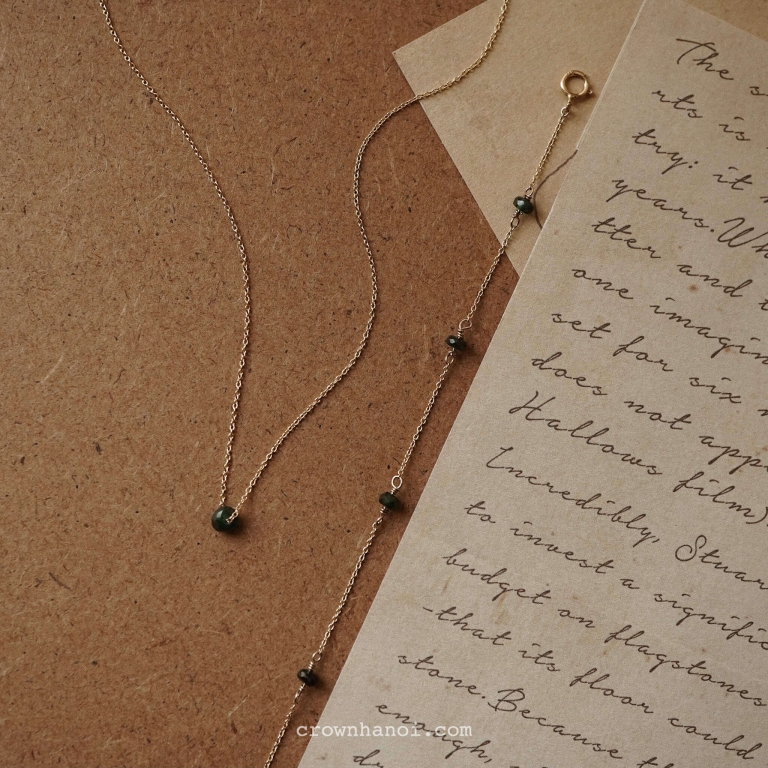 The s
rts is
try: it
years. Wh
tter and t
one imagin
set for six
does not appe
Hallows film)
Incredibly, Stuar
to invest a signific
budget on flagstones
-that its floor could
stone. Because th
enough,
dr
crownhanoi.com